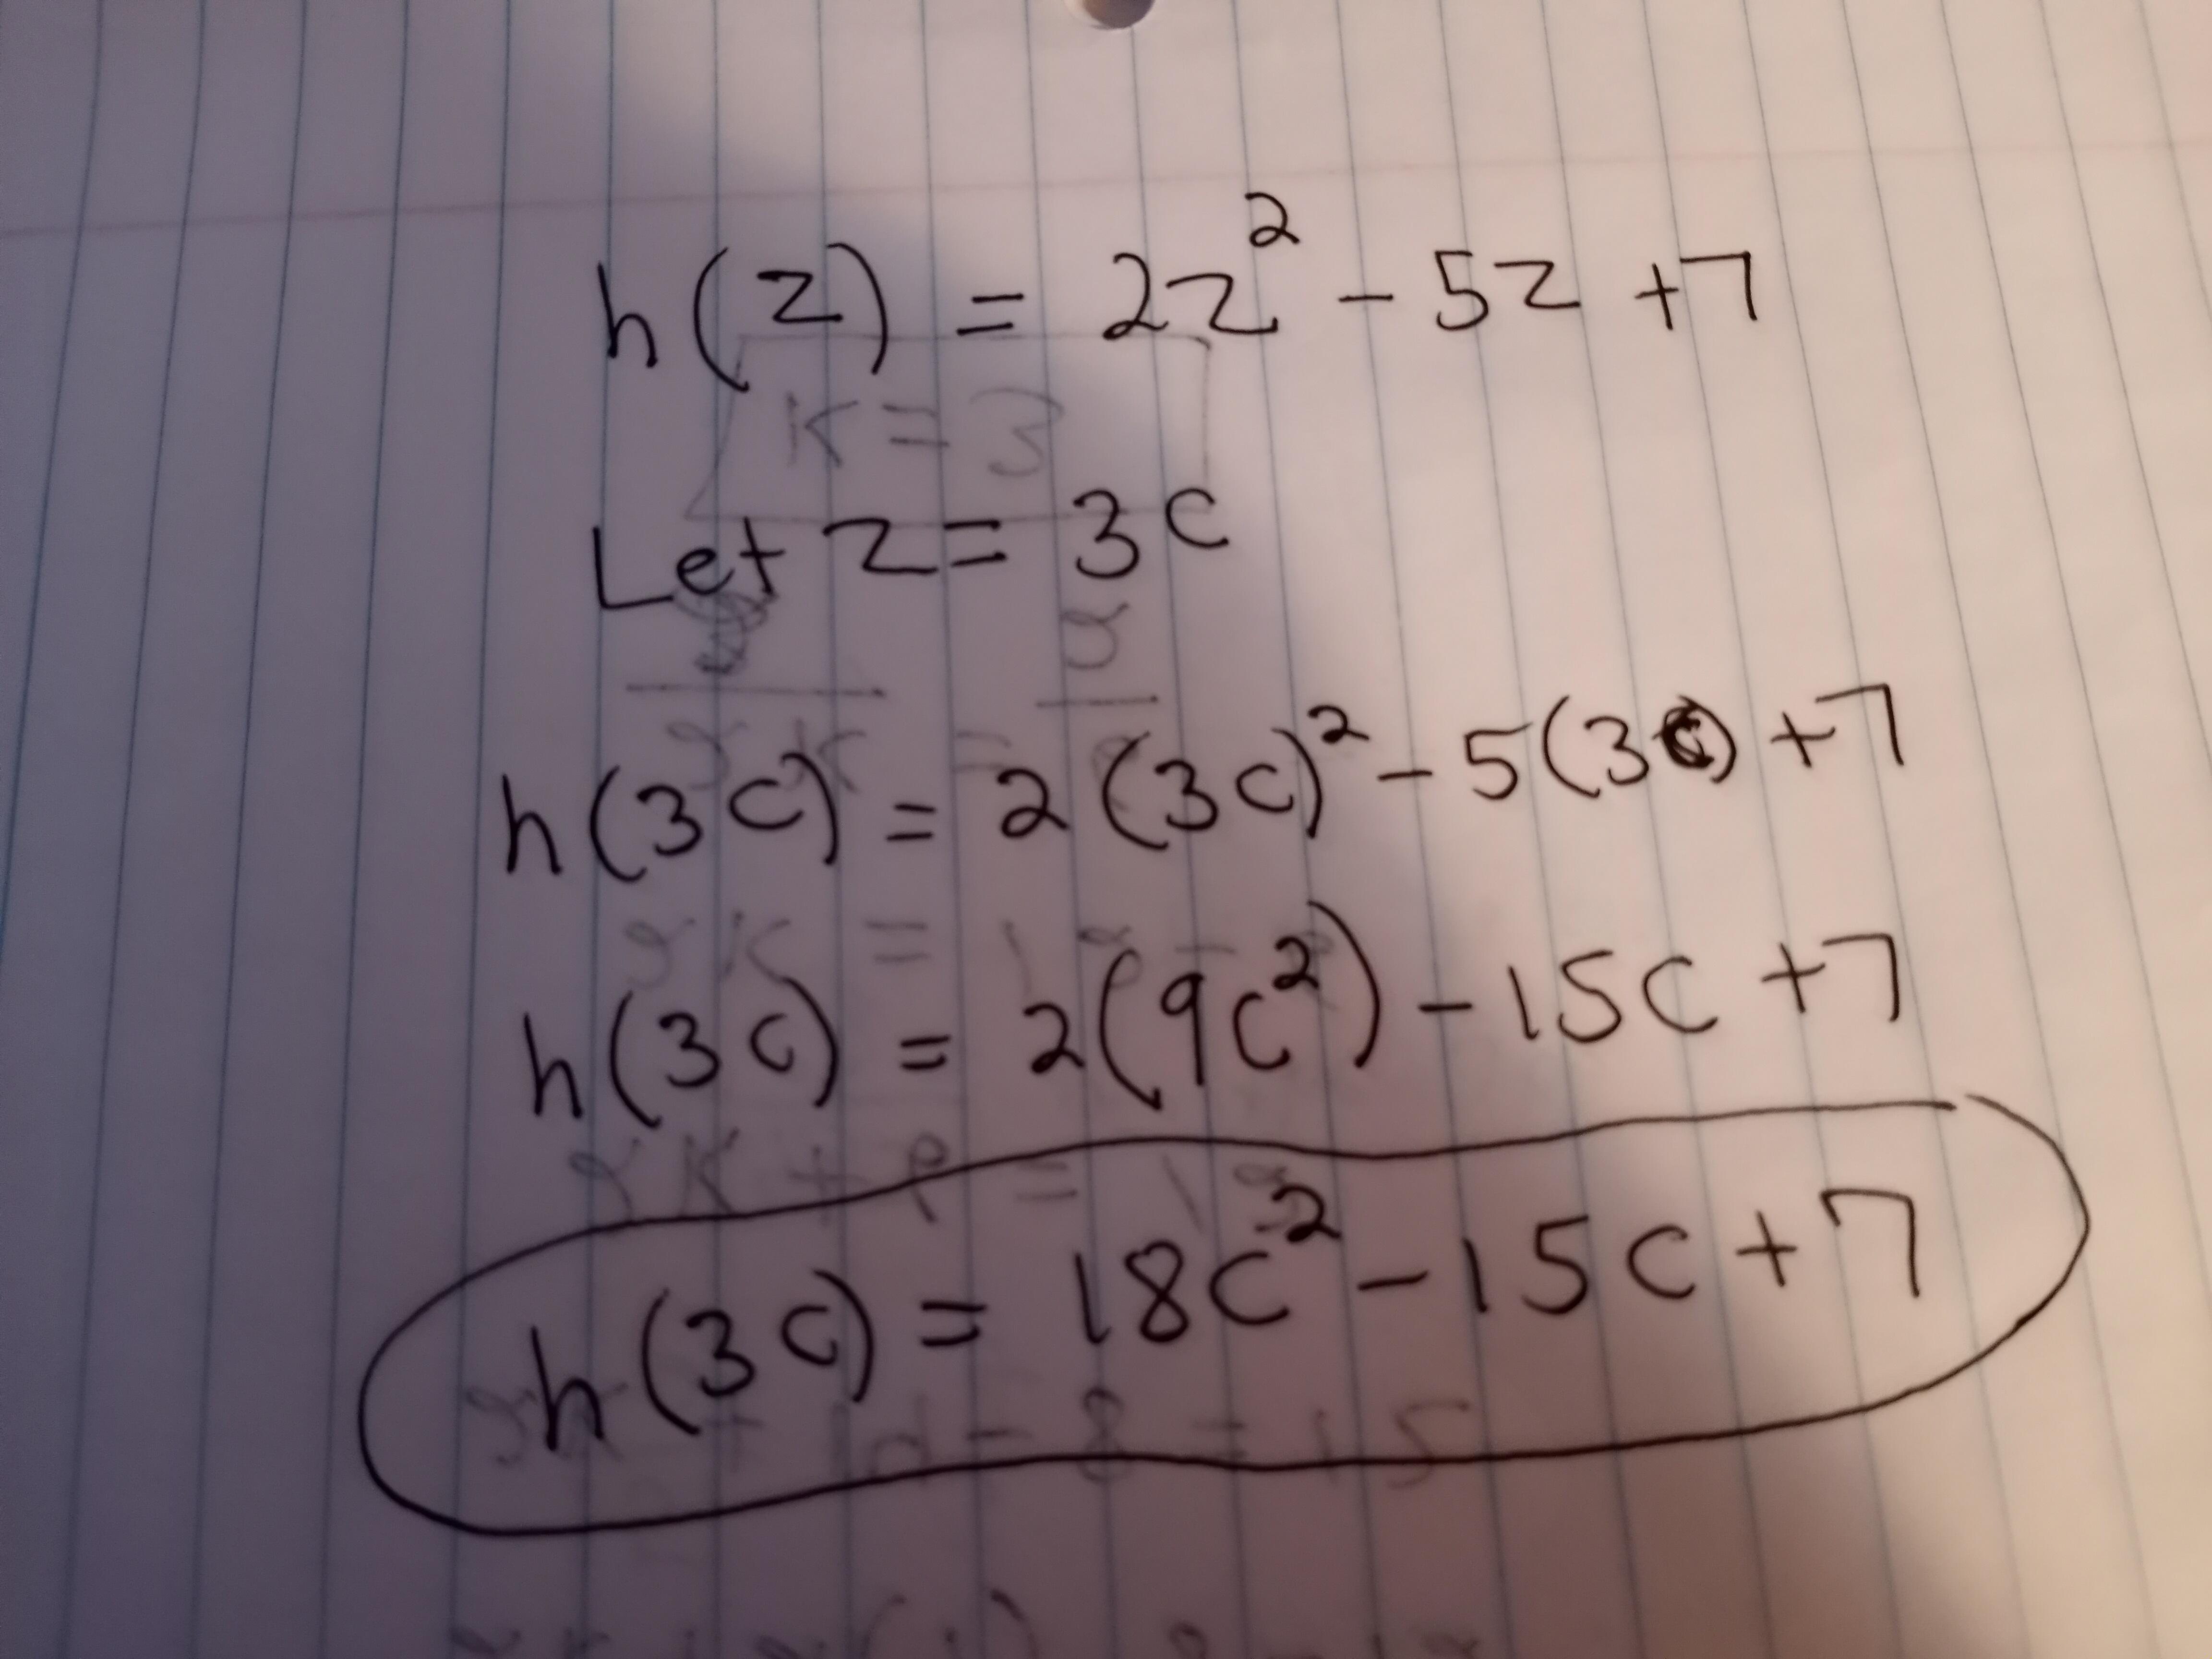 h(z) = 2z² - 5z + 7
Let z = 3c
h(3c) = 2(3c)² - 5(3c) + 7
h(3c) = 2(9c²) - 15c + 7
h(3c) = 18c² - 15c + 7